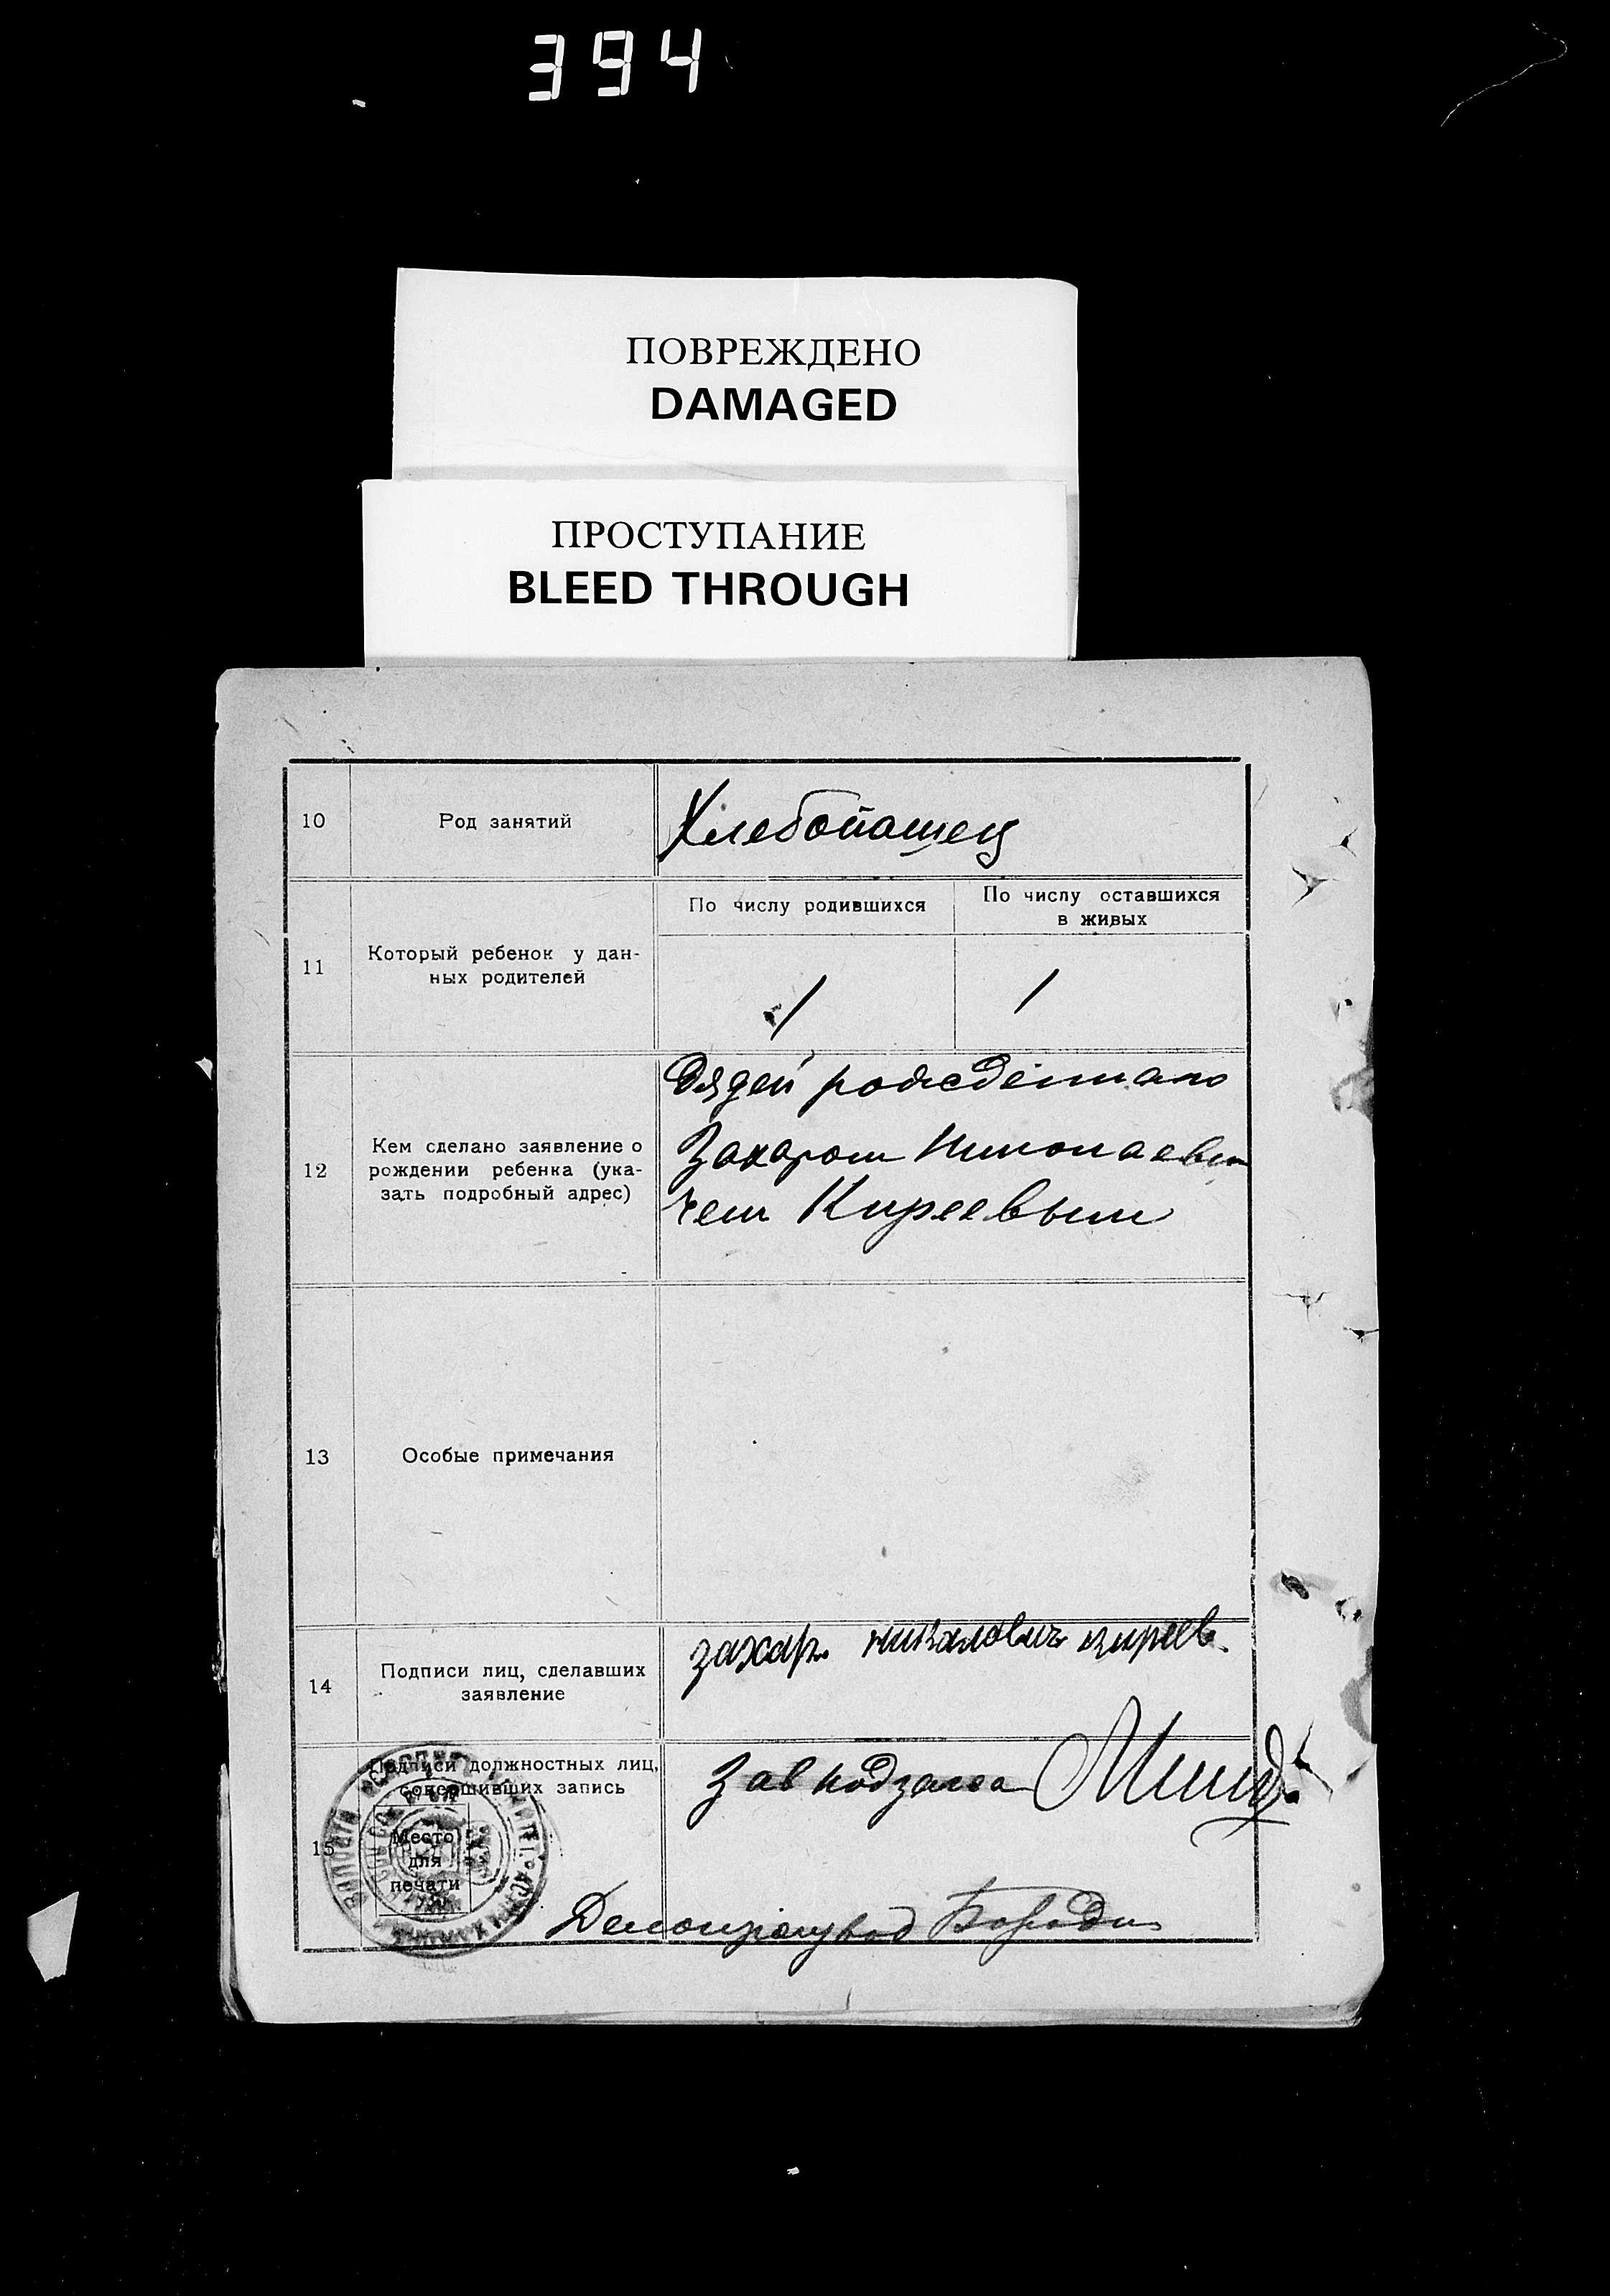 394
ПОВРЕЖДЕНО
DAMAGED
ПРОСТУПАНИЕ
BLEED THROUGH
10
Род занятий
Хлебопашец
11
Который ребенок у дан-
ных родителей
По числу родившихся
По числу оставшихся
в живых
1
1
12
Кем сделано заявление о
рождении ребенка (ука-
зать подробный адрес)
Дядей рожденнаго
Захаром Николаеви
чем Киреевым
13
Особые примечания
14
Подписи лиц, сделавших
заявление
захаръ никаловичъ киреевъ
15
Подписи должностных лиц,
совершивших запись
Место
для
печати
Зав подзагса
Делопроизвод Бородин